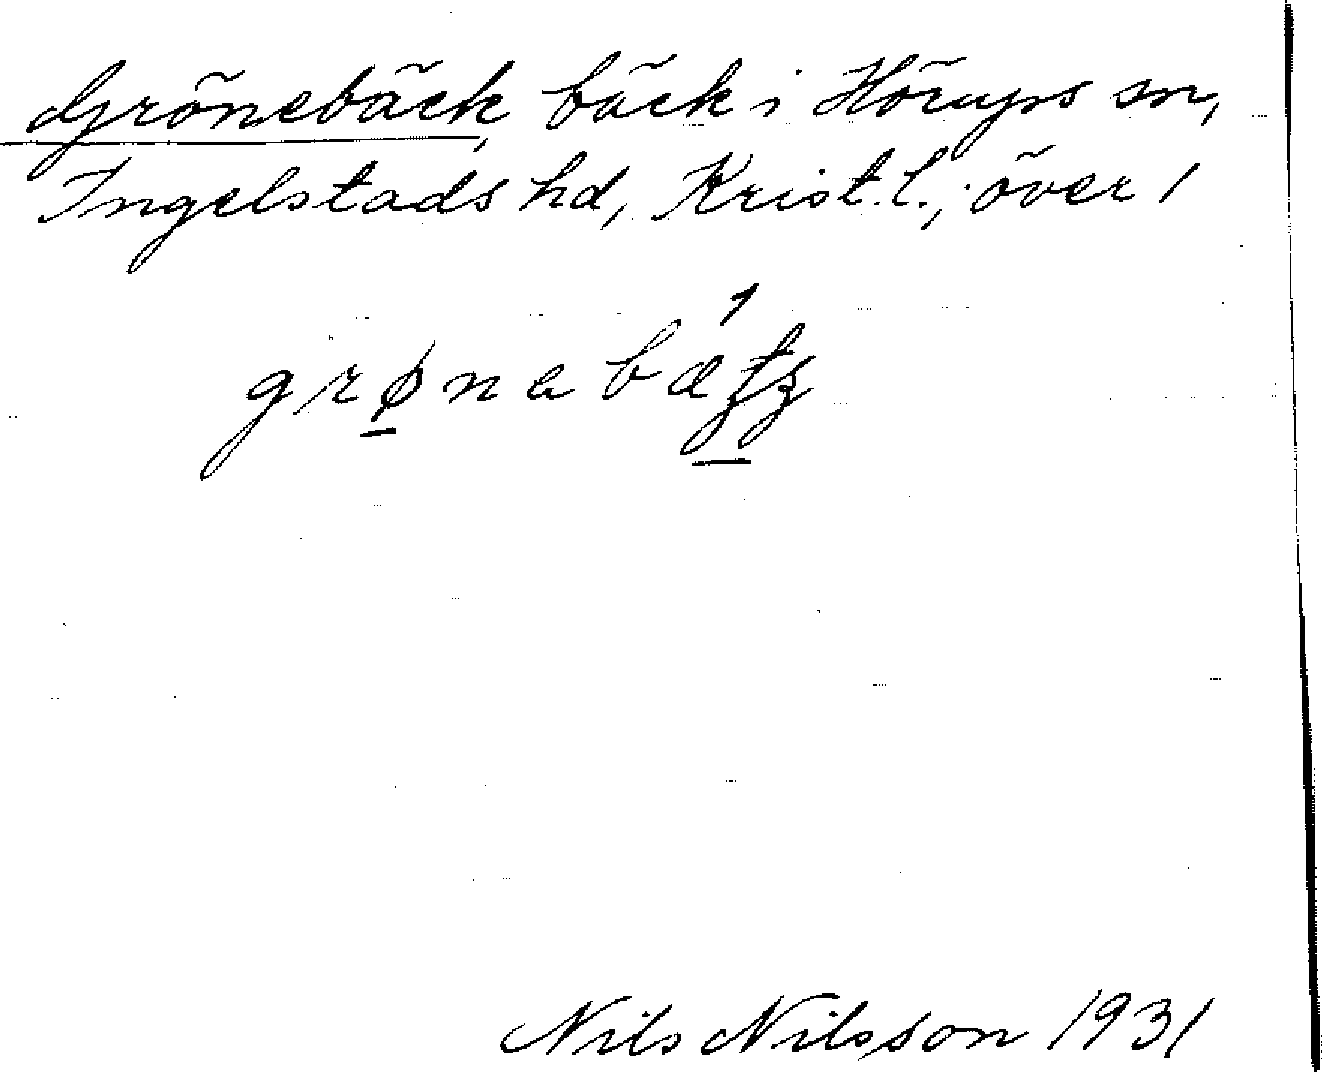 Grönebäck, bäck i Hörups sn,
Ingelstads hd, Krist. l.; över 1
Nils Nilsson 1931